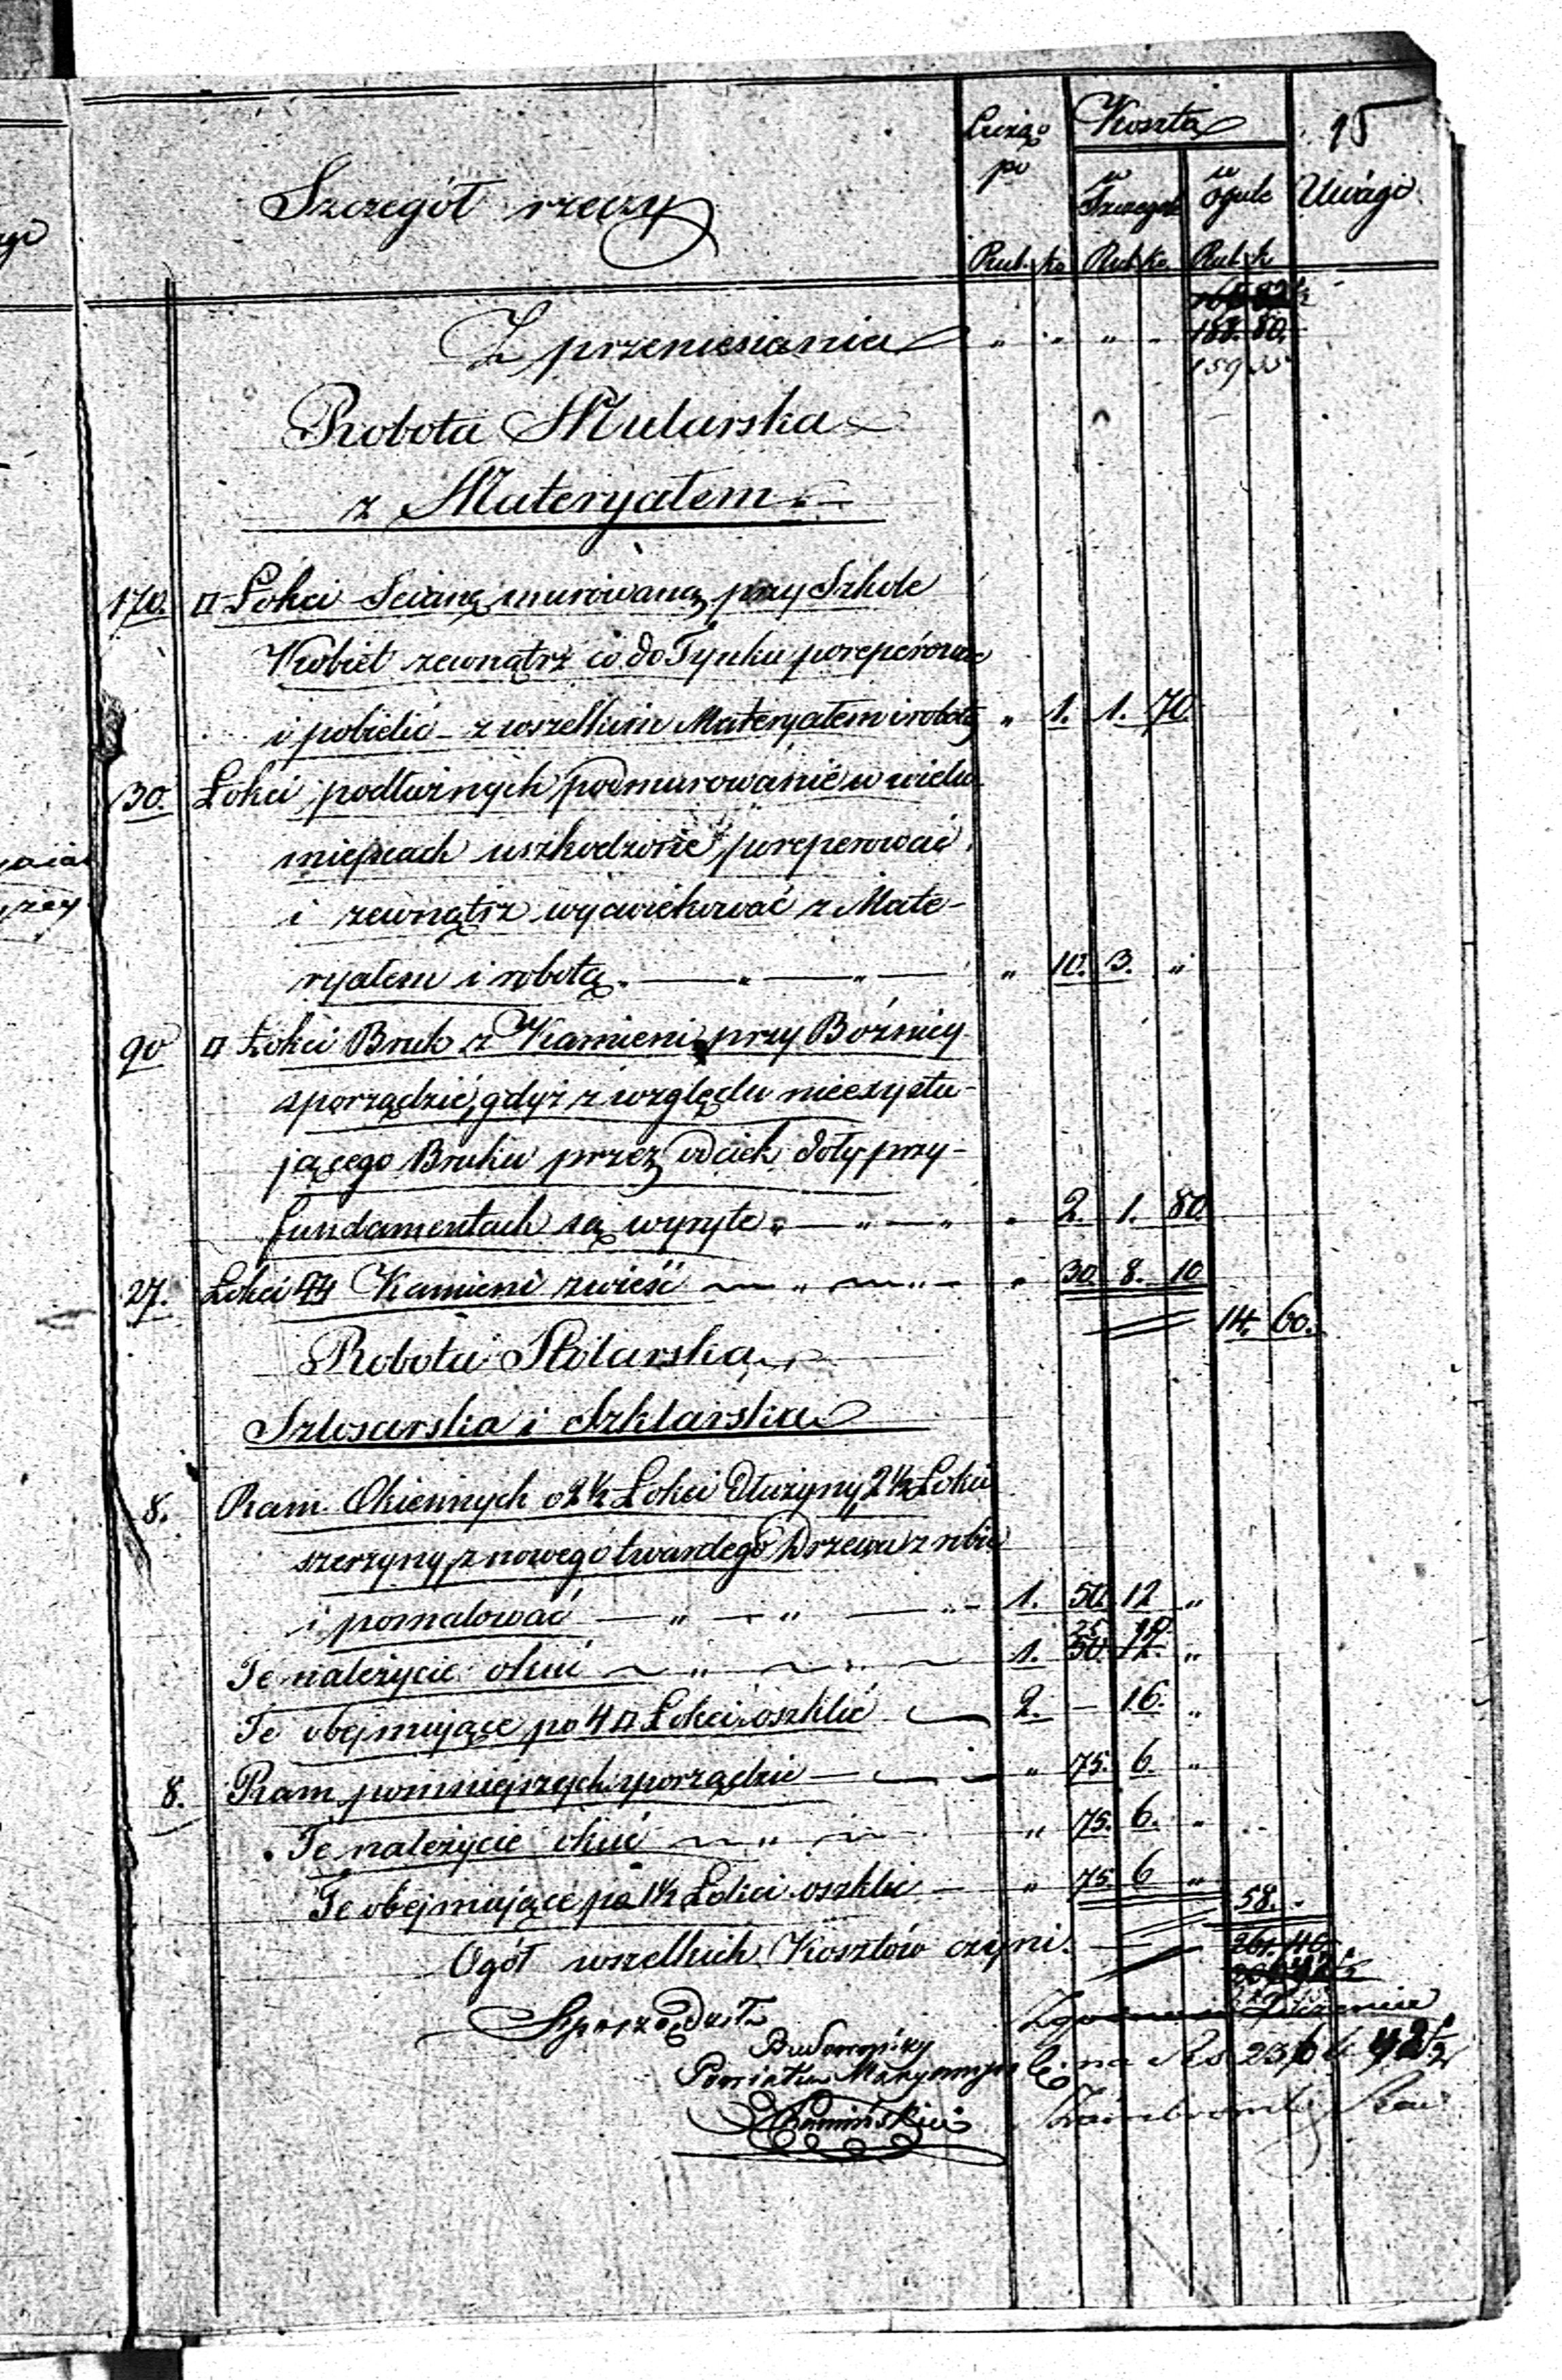 15
Szczegół rzeczy
Licząc po
Koszta
w Szczegół
w ogule
Uwagi
Rub. ko Rub. ko. Rub. k
Z przeniesienia " " " " 188. 80.
159 35
Robota Mularska
z Materyałem
170. □ Łokci Scianę murowaną przy Szkole
Kobiet zewnątrz co do Tynku poreperować
i pobielić z wszelkim Materyałem i robotą " 1. 1. 70.
30. Łokci podłużnych podmurowanie w wielu
miejscach uszkodzone poreperować
i zewnątrz wycwiekować z Mate-
ryałem i robotą " 10. 3. "
90 □ Łokci Bruk z Kamieni przy Bóźnicy
sporządzić, gdyż z względu nieexystu-
jącego Bruku przez odciek doły przy-
fundamentach są wyryte " 2. 1. 80.
27. Łokci Kamieni zwieść " 30. 8. 10
14. 60.
Robota Stolarska
Szlosarska i Szklarska
8. Ram Okiennych o 2½ Łokci dłużyny, 2½ Łokci
szerzyny, z nowego twardego Drzewa zrobić
i pomalować 1. 50. 12 "
25
Te należycie okuć 1. 50. 12. "
Te obejmujące po 4 □ Łokci oszklić 2. — 16. "
8. Ram pomniejszych sporządzić " 75. 6. "
Te należycie okuć " 75. 6. "
Te obejmujące po 1½ Łokci oszklić " 75. 6 "
58. "
Ogół wszelkich Kosztów czyni. 261. 40
Sporządził
Budowniczy
Powiatu
Kamiński
na Rs